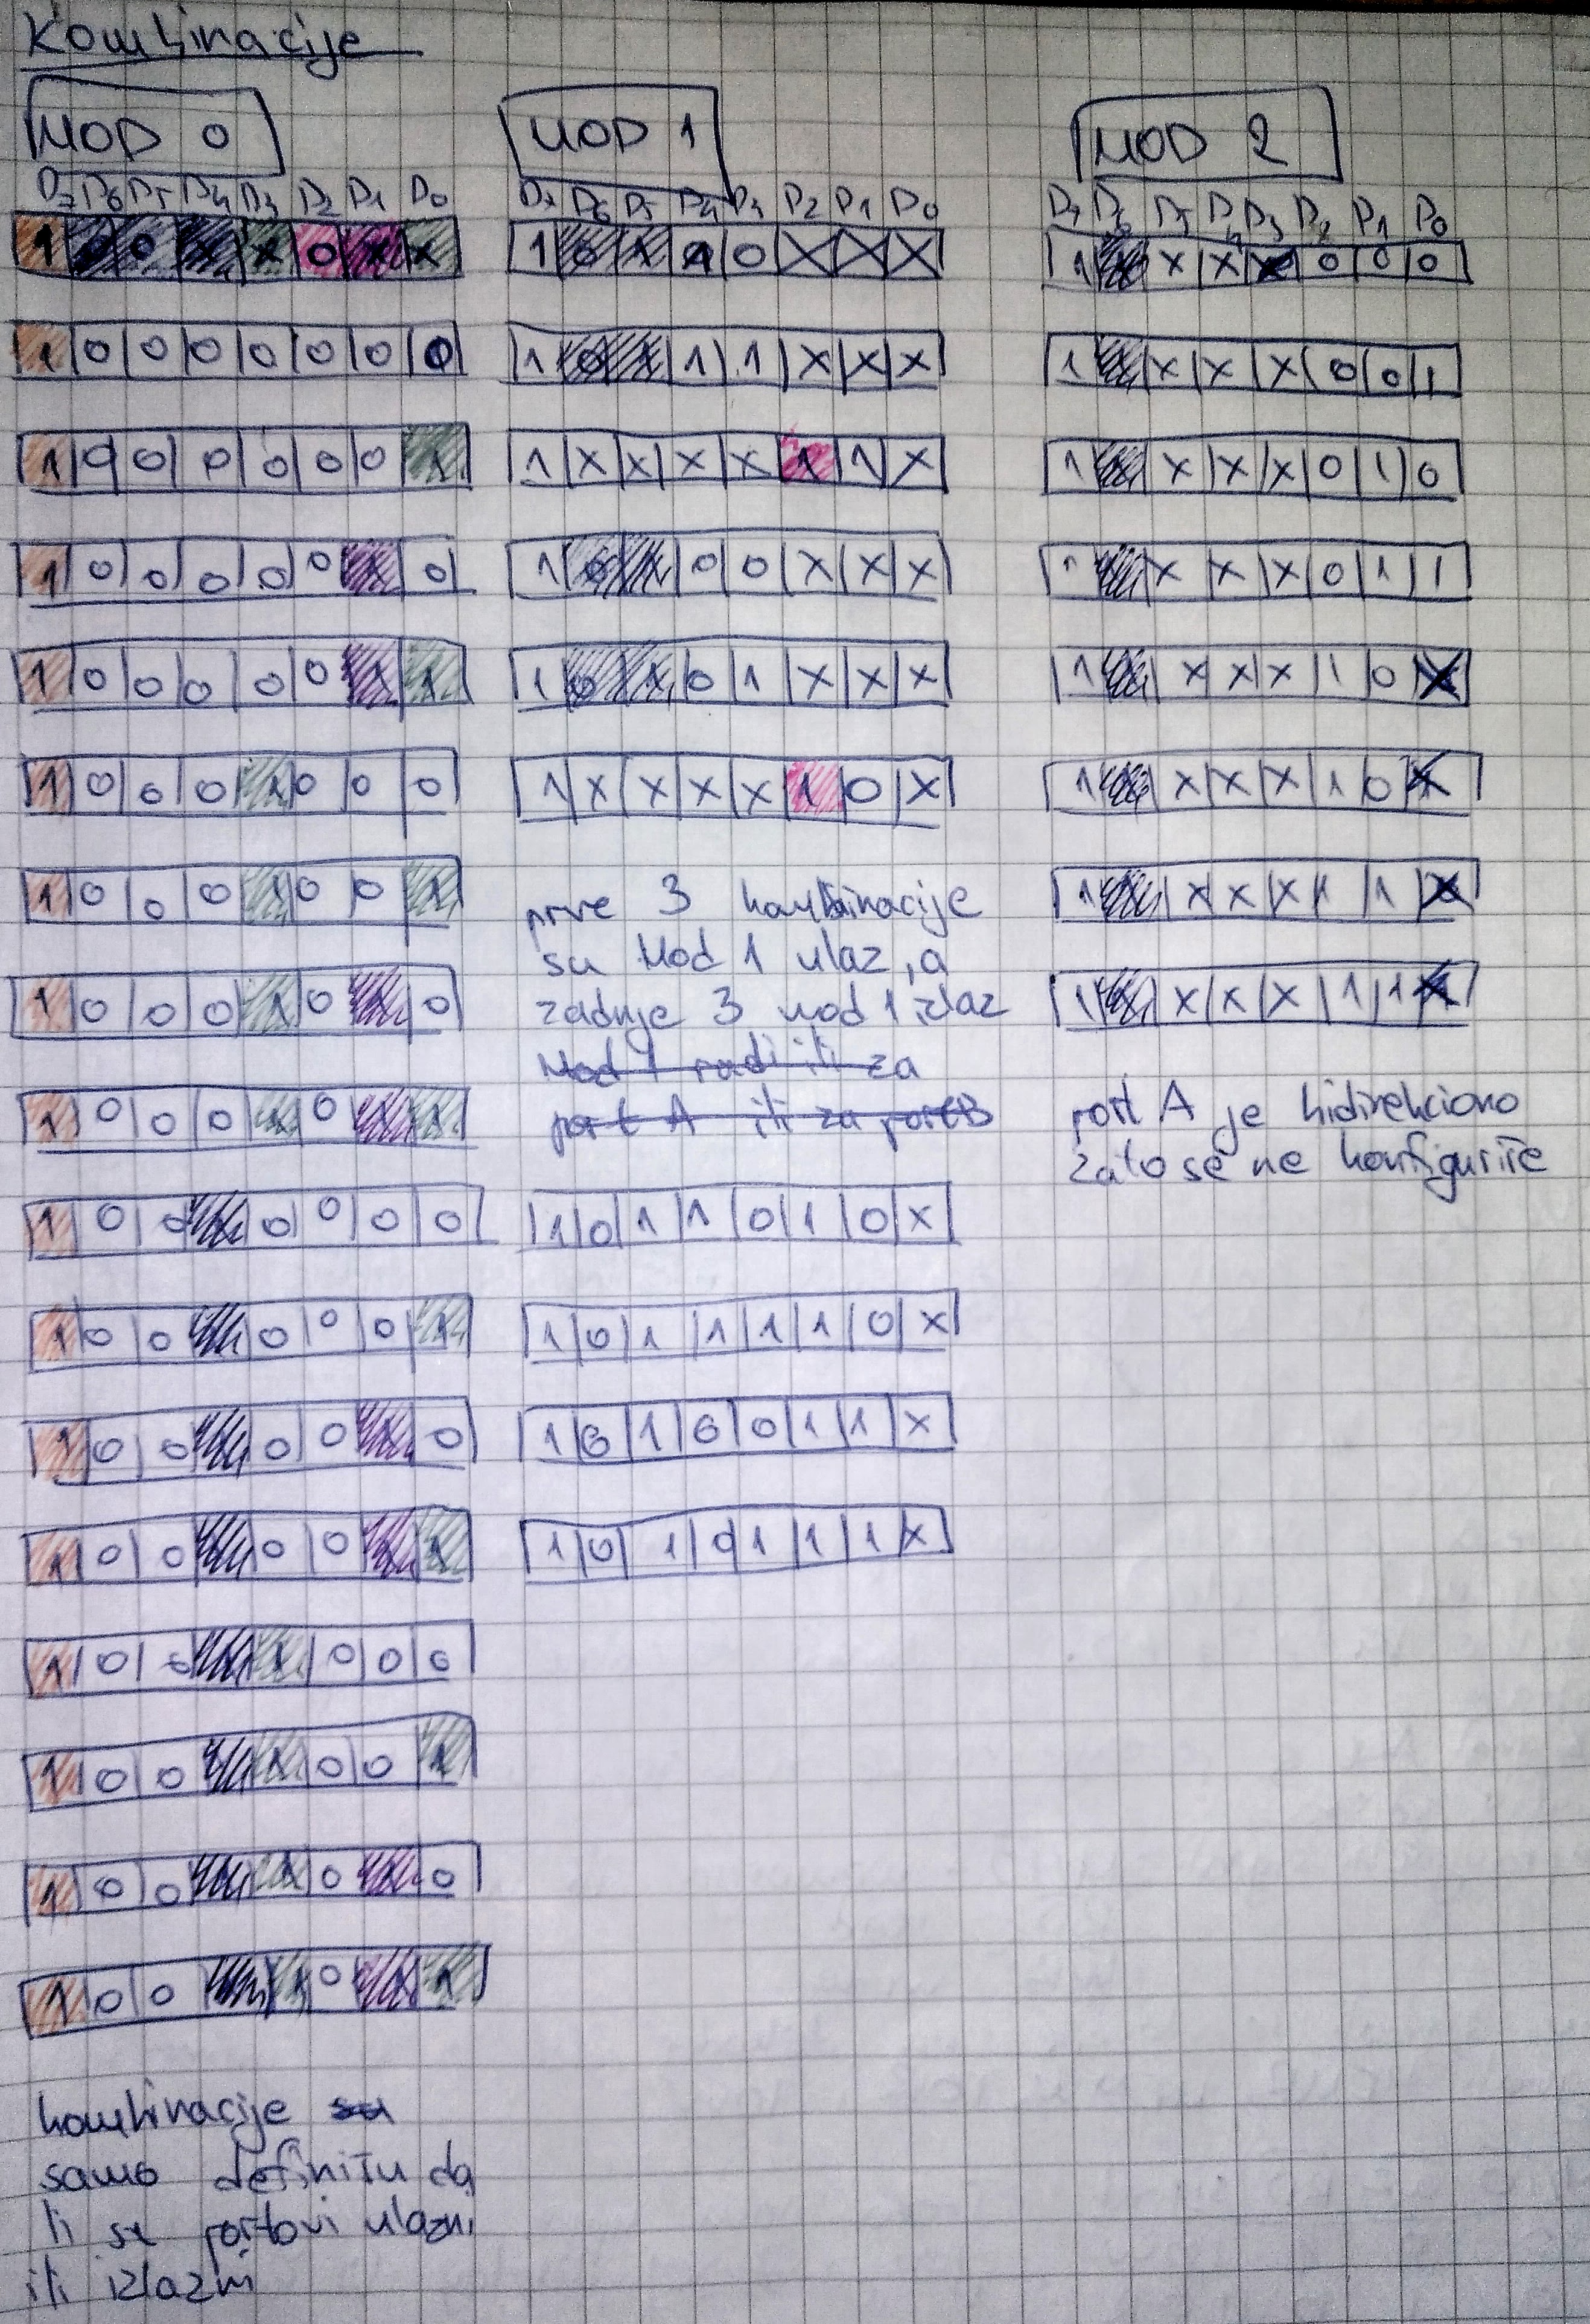 Kombinacije
MOD 0
D7 D6 D5 D4 D3 D2 D1 D0
1 0 0 X X 0 X X
1 0 0 0 0 0 0 0
1 0 0 0 0 0 0 1
1 0 0 0 0 0 1 0
1 0 0 0 0 0 1 1
1 0 0 0 1 0 0 0
1 0 0 0 1 0 0 1
1 0 0 0 1 0 1 0
1 0 0 0 1 0 1 1
1 0 0 1 0 0 0 0
1 0 0 1 0 0 0 1
1 0 0 1 0 0 1 0
1 0 0 1 0 0 1 1
1 0 0 1 1 0 0 0
1 0 0 1 1 0 0 1
1 0 0 1 1 0 1 0
1 0 0 1 1 0 1 1
kombinacije su
samo definišu da
li su portovi ulazni
ili izlazni
MOD 1
D7 D6 D5 D4 D3 D2 D1 D0
1 0 1 0 X X X
1 0 1 1 1 X X X
1 X X X X 1 1 X
1 0 1 0 0 X X X
1 0 1 0 1 X X X
1 X X X X 1 0 X
prve 3 kombinacije
su Mod 1 ulaz, a
zadnje 3 mod 1 izlaz
Mod 1 radi ili za
port A ili za port B
1 0 1 1 0 1 0 X
1 0 1 1 1 1 0 X
1 0 1 0 0 1 1 X
1 0 1 0 1 1 1 X
MOD 2
D7 D6 D5 D4 D3 D2 D1 D0
1 1 X X X 0 0 0
1 1 X X X 0 0 1
1 1 X X X 0 1 0
1 1 X X X 0 1 1
1 1 X X X 1 0 X
1 1 X X X 1 0 X
1 1 X X X 1 1 X
1 1 X X X 1 1 X
port A je bidirekciono
zato se ne konfiguriše